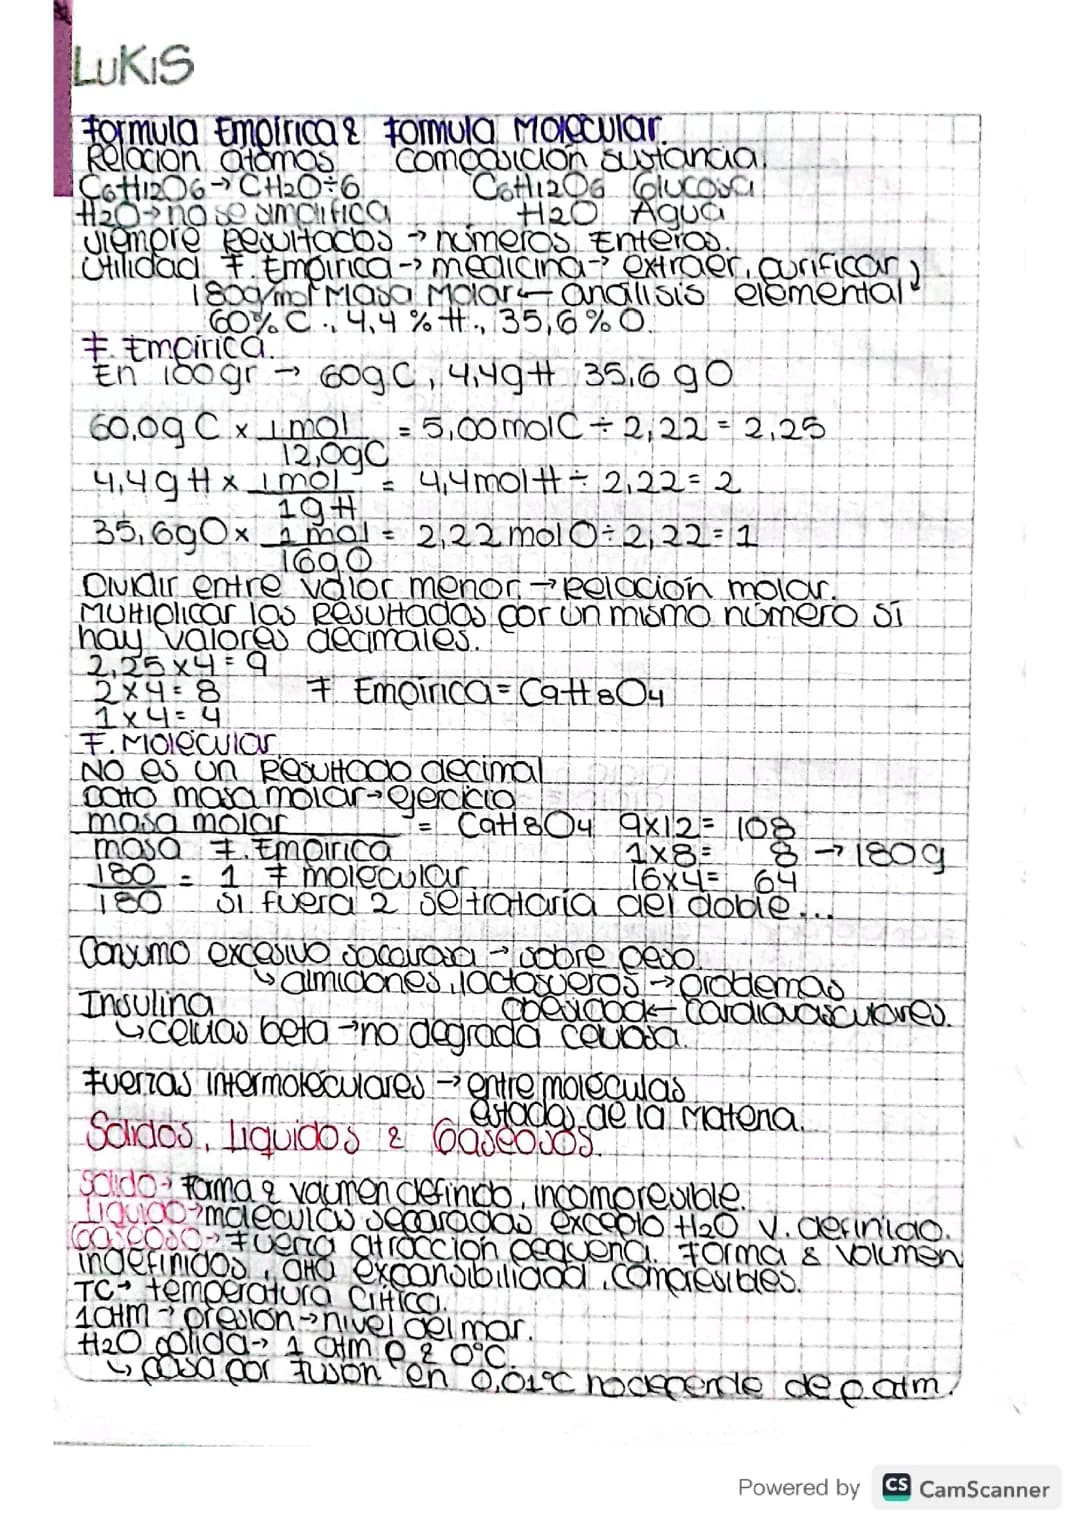 LUKIS
Formula Empírica & Formula Molecular.
Relación átomos Composición sustancia.
C6H12O6→CH2O÷6 C6H12O6 Glucosa
H2O→no se simplifica H2O Agua
siempre resultados → números Enteros.
Utilidad F. Empírica→ medicina→ extraer, purificar
180g/mol Masa Molar← análisis elemental
60% C., 4,4% H., 35,6% O.
F. Empírica.
En 100gr → 60gC, 4,4gH 35,6 gO
60,0g C x 1 mol = 5,00molC ÷ 2,22 = 2,25
12,0gC
4,4g H x 1 mol = 4,4molH ÷ 2,22 = 2
1gH
35,6gO x 1 mol = 2,22 molO ÷ 2,22 = 1
16gO
Dividir entre valor menor → relación molar.
Multiplicar los resultados por un mismo número si
hay valores decimales.
2,25 x 4 = 9
2 x 4 = 8 F Empírica = C9H8O4
1 x 4 = 4
F. Molecular
No es un resultado decimal
Dato masa molar→ejercicio
masa molar = C9H8O4 9x12= 108
masa F. Empírica 1x8= 8 → 180g
180 = 1 F molecular 16x4= 64
180 si fuera 2 se trataría del doble...
Consumo excesivo sacarosa → sobre peso
↳ almidones, lactosueros → problemas
Insulina obesidad ← cardiovasculares.
↳ células beta → no degrada celulosa.
Fuerzas intermoleculares → entre moléculas
estados de la materia.
Sólidos, Líquidos & Gaseosos.
Sólido→ forma & volumen definido, incompresible.
Líquido→moléculas separadas excepto H2O v. definido.
Gaseoso→ Fuerza atracción pequeña. Forma & volumen
indefinidos, alta expansibilidad, compresibles.
TC→ temperatura Crítica.
1atm → presión → nivel del mar.
H2O sólida→ 1 atm p & 0°C.
↳ pasa por fusión en 0,01°C no depende de p atm.
Powered by CS CamScanner